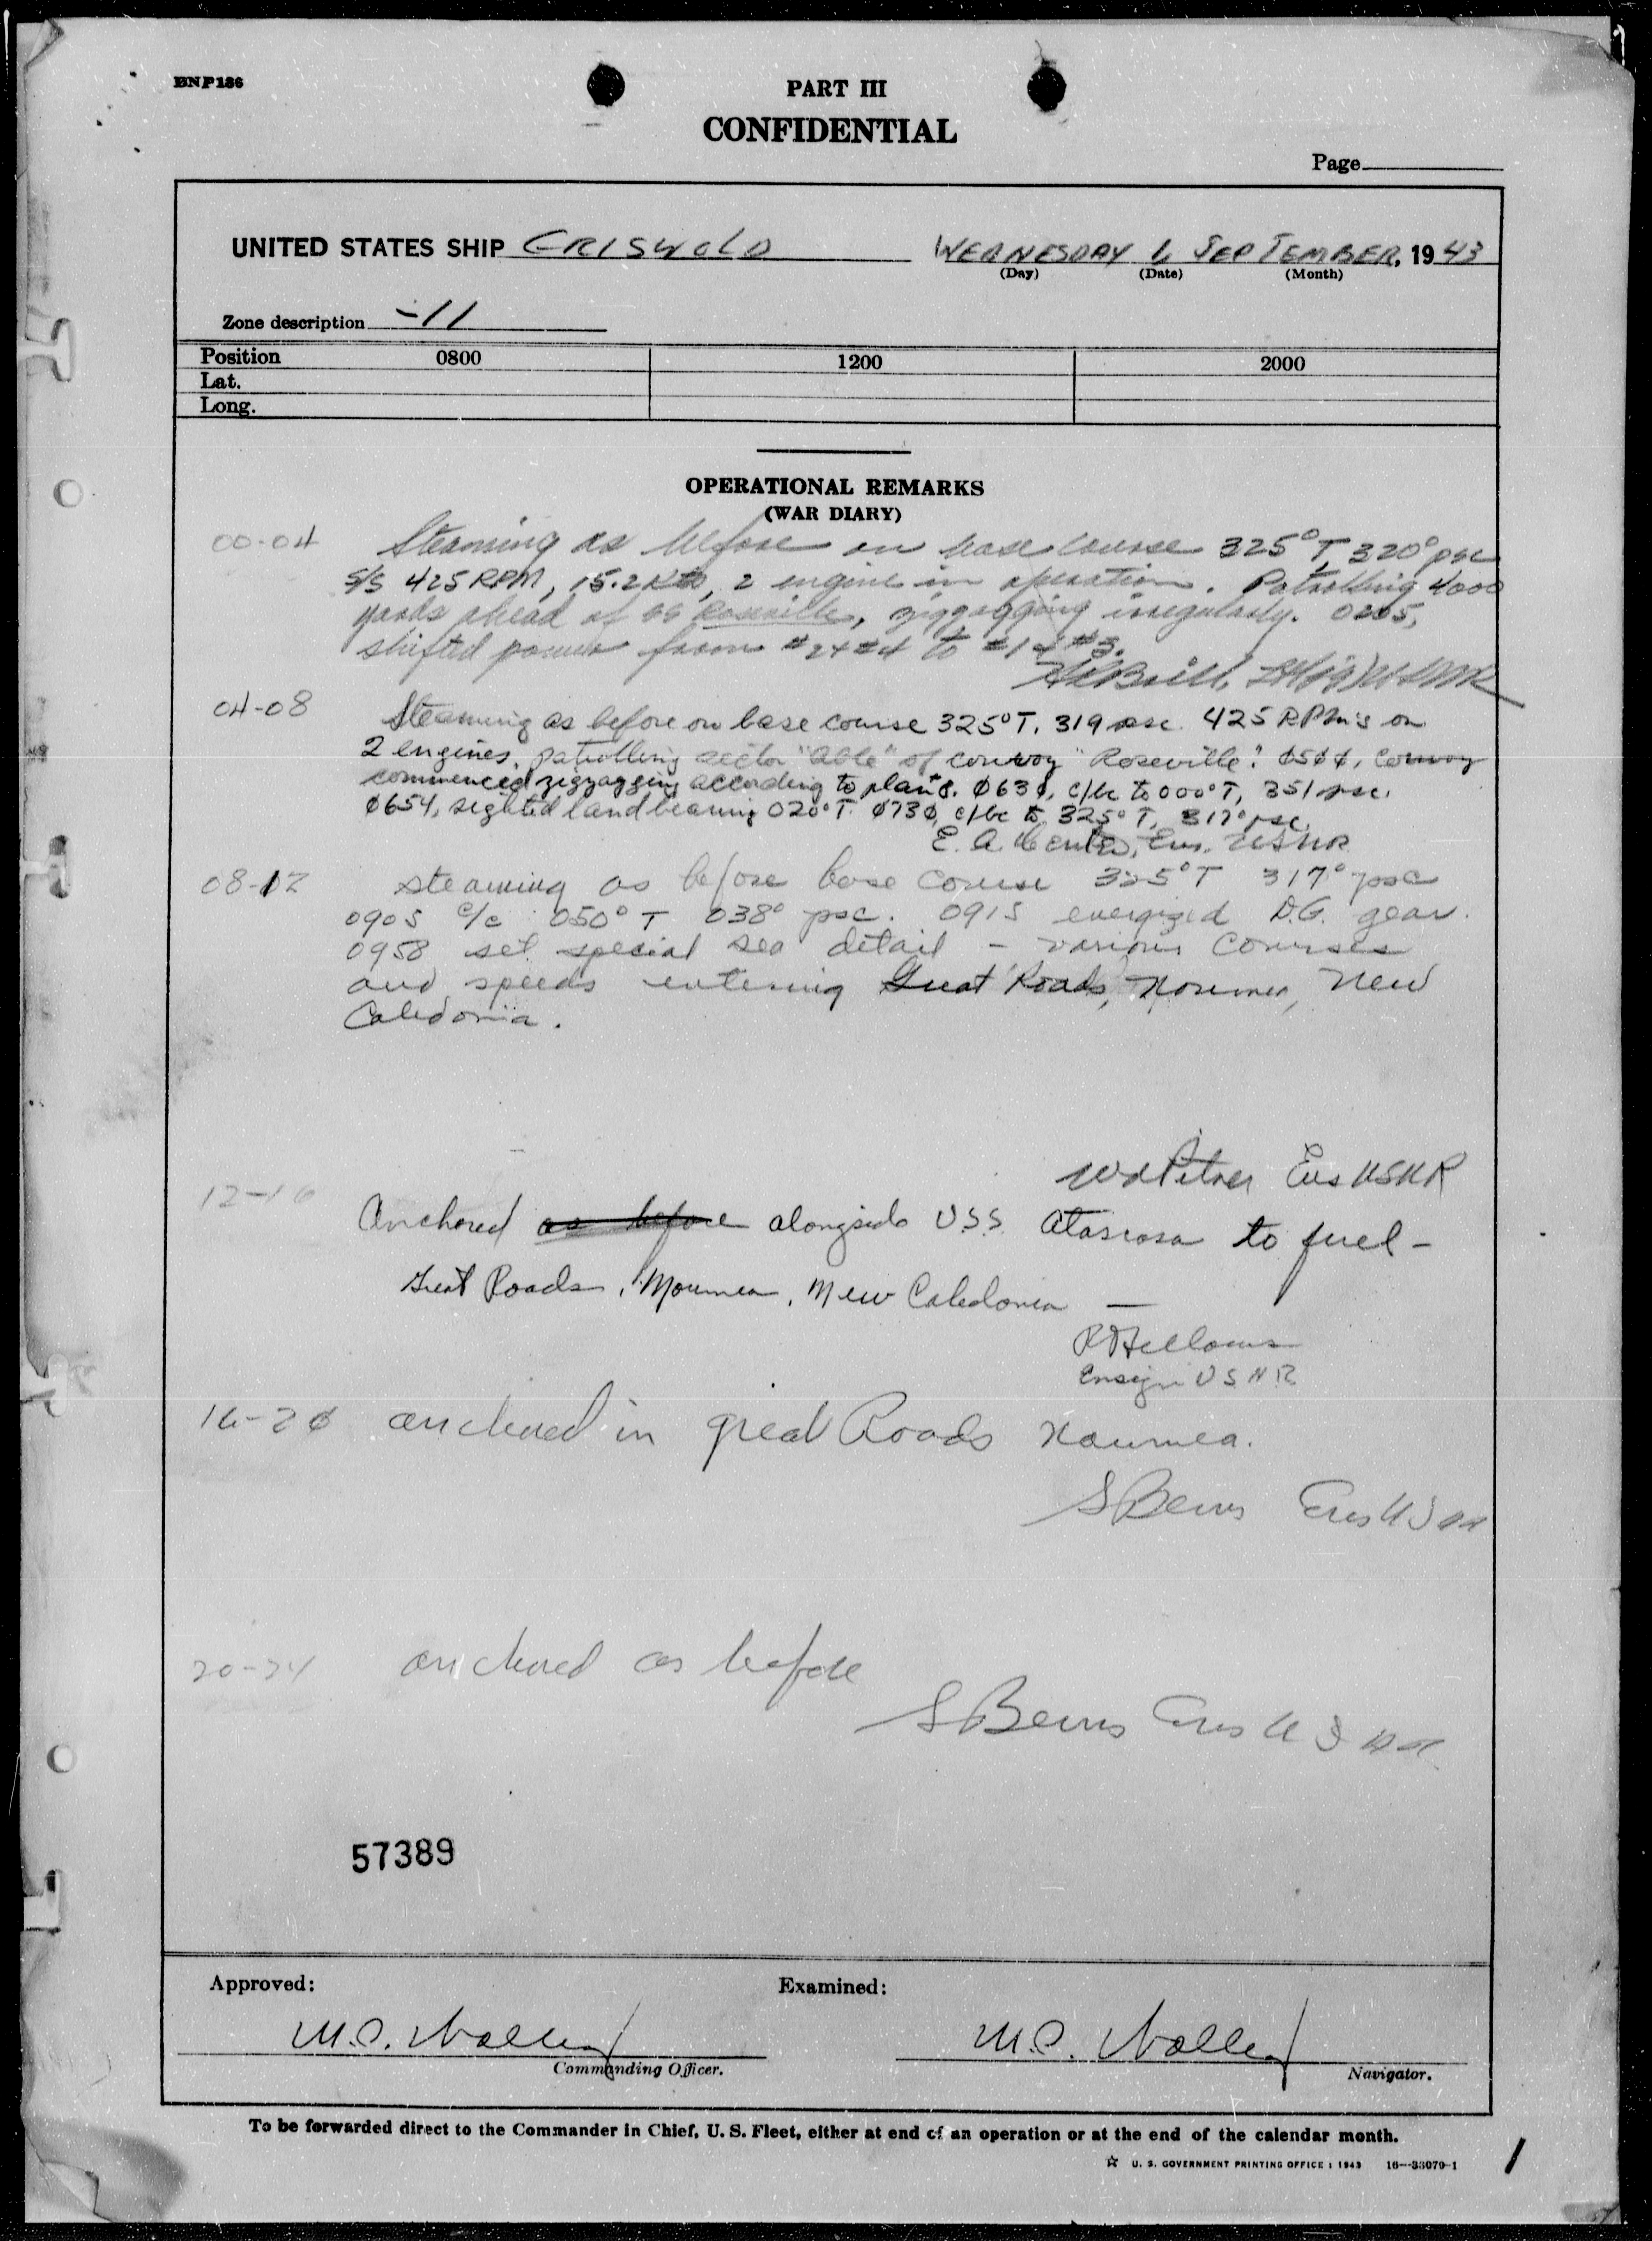 BNP186
PART III
CONFIDENTIAL
Page
UNITED STATES SHIP GRISWOLD WEDNESDAY 1 SEPTEMBER, 1943
(Day) (Date) (Month)
Zone description -11
Position 0800 1200 2000
Lat.
Long.
OPERATIONAL REMARKS
(WAR DIARY)
00-04 Steaming as before on base course 325°T, 320° psc
s/s 425 RPM, 15.2 Kts, 2 engine in operation. Patrolling 4000
yards ahead of SS Roseville, zigzagging irregularly. 0205,
shifted power from #2+#4 to #1+#3.
04-08 Steaming as before on base course 325°T, 319 psc. 425 RPM's on
2 engines, patrolling sector "able" of convoy "Roseville". 0500, convoy
commenced zigzagging according to plan #8. 0630, c/bc to 000°T, 351 psc.
0654, sighted land bearing 020°T. 0730, c/bc to 325°T, 317° psc.
E. A. Ens. USNR
08-12 steaming as before base course 325°T 317° psc
0905 c/c 050° T 038° psc. 0915 energized D.G. gear.
0958 set special sea detail - various courses
and speeds entering Great Roads, Noumea, New
Caledonia.
Ens USNR
12-16
Anchored as before alongside U.S.S. Atascosa to fuel -
Great Roads, Noumea, New Caledonia —
Ensign USNR
16-20 anchored in great Roads Noumea.
S Berns Ens USNR
20-24 anchored as before
S Berns Ens USNR
57389
Approved: Examined:
M.C. M.C.
Commanding Officer. Navigator.
To be forwarded direct to the Commander in Chief, U. S. Fleet, either at end of an operation or at the end of the calendar month.
☆ U. S. GOVERNMENT PRINTING OFFICE : 1943 16—33079-1
1